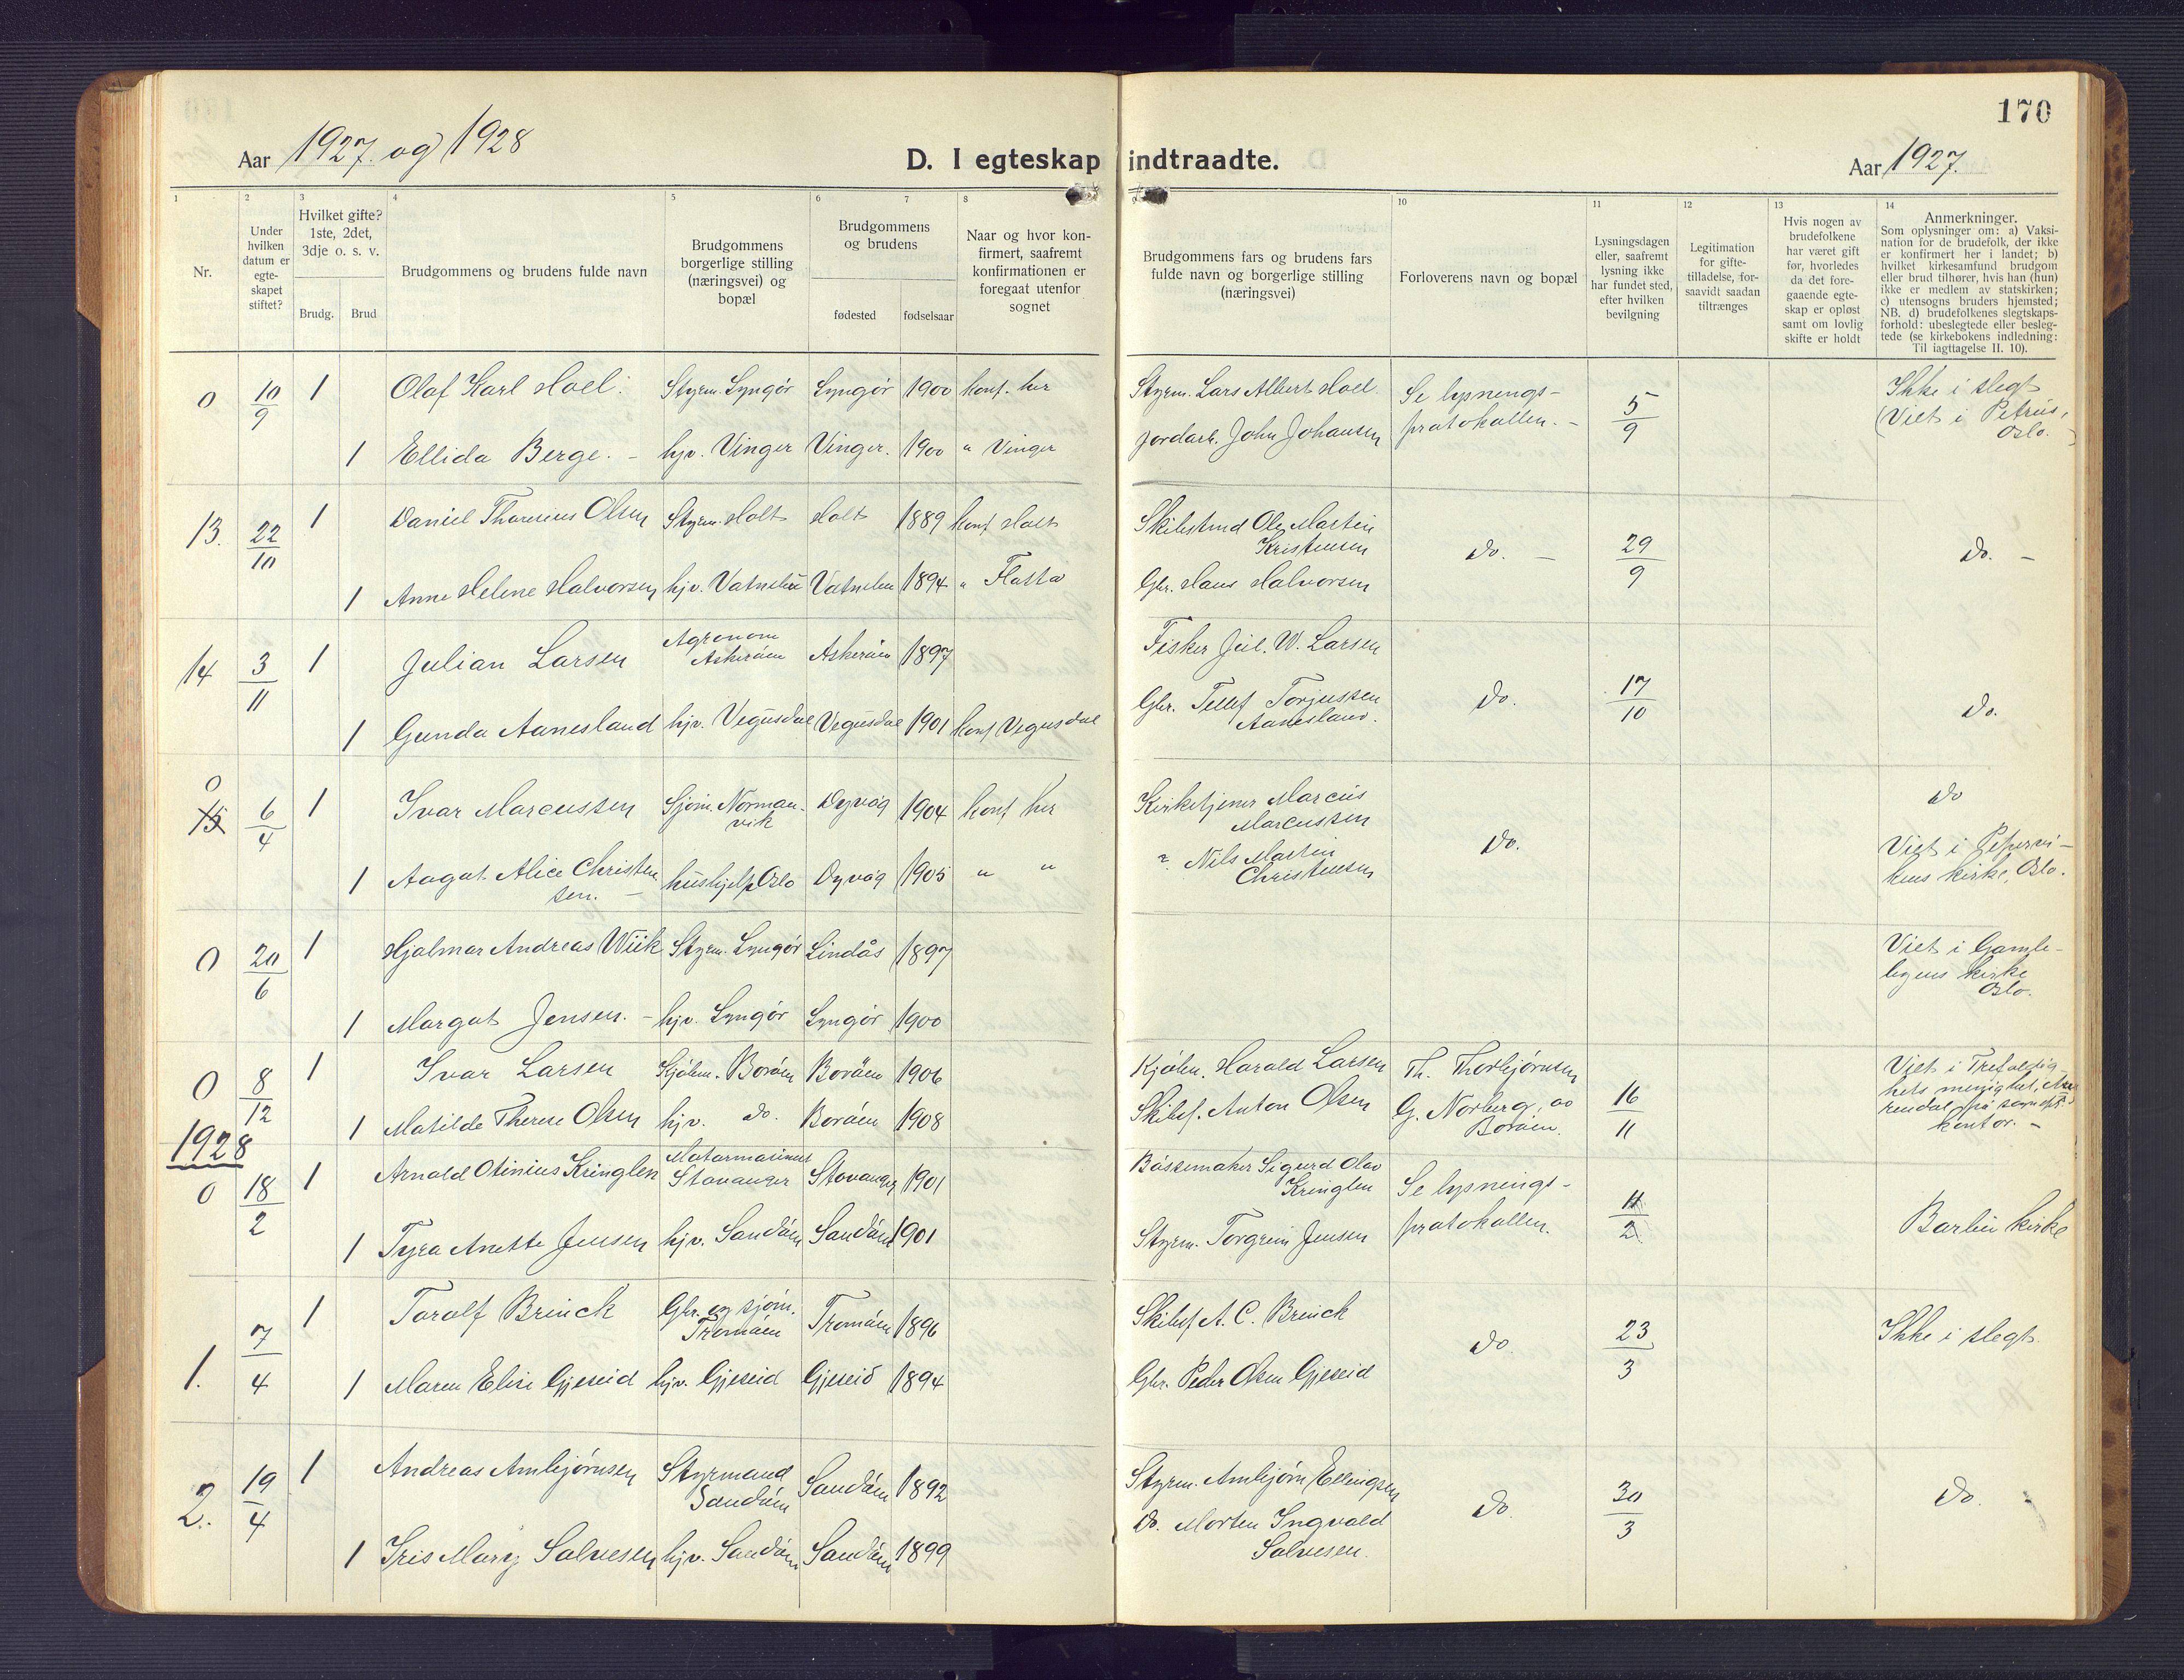 170
Aar 1927. og 1928
D. I egteskap indtraadte.
Aar 1927.
1
2
3
4
5
6
7
8
10
11
12
13
14
Nr.
Under
hvilken
datum er
egte-
skapet
stiftet?
Hvilket gifte?
1ste, 2det,
3dje o. s. v.
Brudg.
Brud
Brudgommens og brudens fulde navn
Brudgommens
borgerlige stilling
(næringsvei) og
bopæl
Brudgommens
og brudens
fødested
fødselsaar
Naar og hvor kon-
firmert, saafremt
konfirmationen er
foregaat utenfor
sognet
Brudgommens fars og brudens fars
fulde navn og borgerlige stilling
(næringsvei)
Forloverens navn og bopæl
Lysningsdagen
eller, saafremt
lysning ikke
har fundet sted,
efter hvilken
bevilgning
Legitimation
for gifte-
tilladelse, for-
saavidt saadan
tiltrænges
Hvis nogen av
brudefolkene
har været gift
før, hvorledes
da det fore-
gaaende egte-
skap er opløst
samt om lovlig
skifte er holdt
Anmerkninger.
Som oplysninger om: a) Vaksi-
nation for de brudefolk, der ikke
er konfirmert her i landet; b)
hvilket kirkesamfund brudgom
eller brud tilhører, hvis han (hun)
ikke er medlem av statskirken;
c) utensogns bruders hjemsted;
NB. d) brudefolkenes slegtskaps-
forhold: ubeslegtede eller besleg-
tede (se kirkebokens indledning:
Til iagttagelse II. 10).
0 10/9 1 Olaf Karl Hoel. Styrm. Lyngør Lyngør 1900 konf. her
Styrm. Lars Albert Hoel. Se lysnings- 5/9 Ikke i slegt
protokollen. - (Viet i Petrus,
Oslo.)
1 Ellida Berge. - hjv. Vinger Vinger. 1900 " Vinger
Jordarb. John Johansen
13. 22/10 1 Daniel Olsen Styrm. Holt Holt 1889 konf Holt
Ole Martin
Kristensen Do. - 29/9 Do. -
1 Anne Helene Halvorsen hjv. 1894 "
Gbr. Hans Halvorsen
14 3/11 1 Julian Larsen Agronom
Askerøen Askerøen 1897
Fisker Jul. W. Larsen
1 Gunda Aanesland hjv. Vegusdal Vegusdal 1901 konf Vegusdal
Gbr. Tellef Torjussen
Aanesland. Do. 17/10 Do.
0
15 6/4 1 Ivar Marcussen Sjøm. Norman-
vik Dyvåg 1904 konf her
Kirketjener Marcus
Marcussen Do. Do
1 Aagot Alice Christen
sen. - hushjelp Oslo Dyvåg 1905 " "
? Nils Martin
Christensen
Viet i Pipervi-
kens kirke, Oslo.
0 20/6 1 Hjalmar Andreas Wiik Styrm. Lyngør Lindås 1897
Viet i Gamle-
byens kirke
Oslo.
1 Margot Jensen. - hjv. Lyngør Lyngør 1900
0 8/12 1 Ivar Larsen Borøen Borøen 1906
Harald Larsen Th. Thorbjørnsen
1 Matilde Therese Olsen hjv. do. Borøen 1908
Skibsf. Anton Olsen G. Norberg,
Borøen. 16/11
Viet i Trefoldig-
hets menighet, Aren-
rendal, på
kontor. -
1928
0 18/2 1 Arnold Otinius Kringlen
Stavanger Stavanger 1901
Bøssemaker Sigurd Olav
Kringlen Se lysnings-
protokollen. 11/2 Barbu kirke
1 Tyra Anette Jensen hjv. Sandøen Sandøen 1901
Styrm. Torgrim Jensen
1. 7/4 1 Toralf Brinck Gbr. og sjøm.
Tromøen Tromøen 1896
Skibsf A. C. Brinck Do. 23/3 Ikke i slegt.
1 Maren Elise Gjeseid hjv. Gjeseid Gjeseid 1894
Gbr. Peder Olsen Gjeseid
2. 19/4 1 Andreas Arnbjørnsen Styrmand
Sandøen Sandøen 1892
Styrm. Arnbjørn Ellingsen Do 30/3 Do.
1 Iris Mary Salvesen hjv. Sandøen Sandøen 1899
Do. Morten Ingvald
Salvesen.